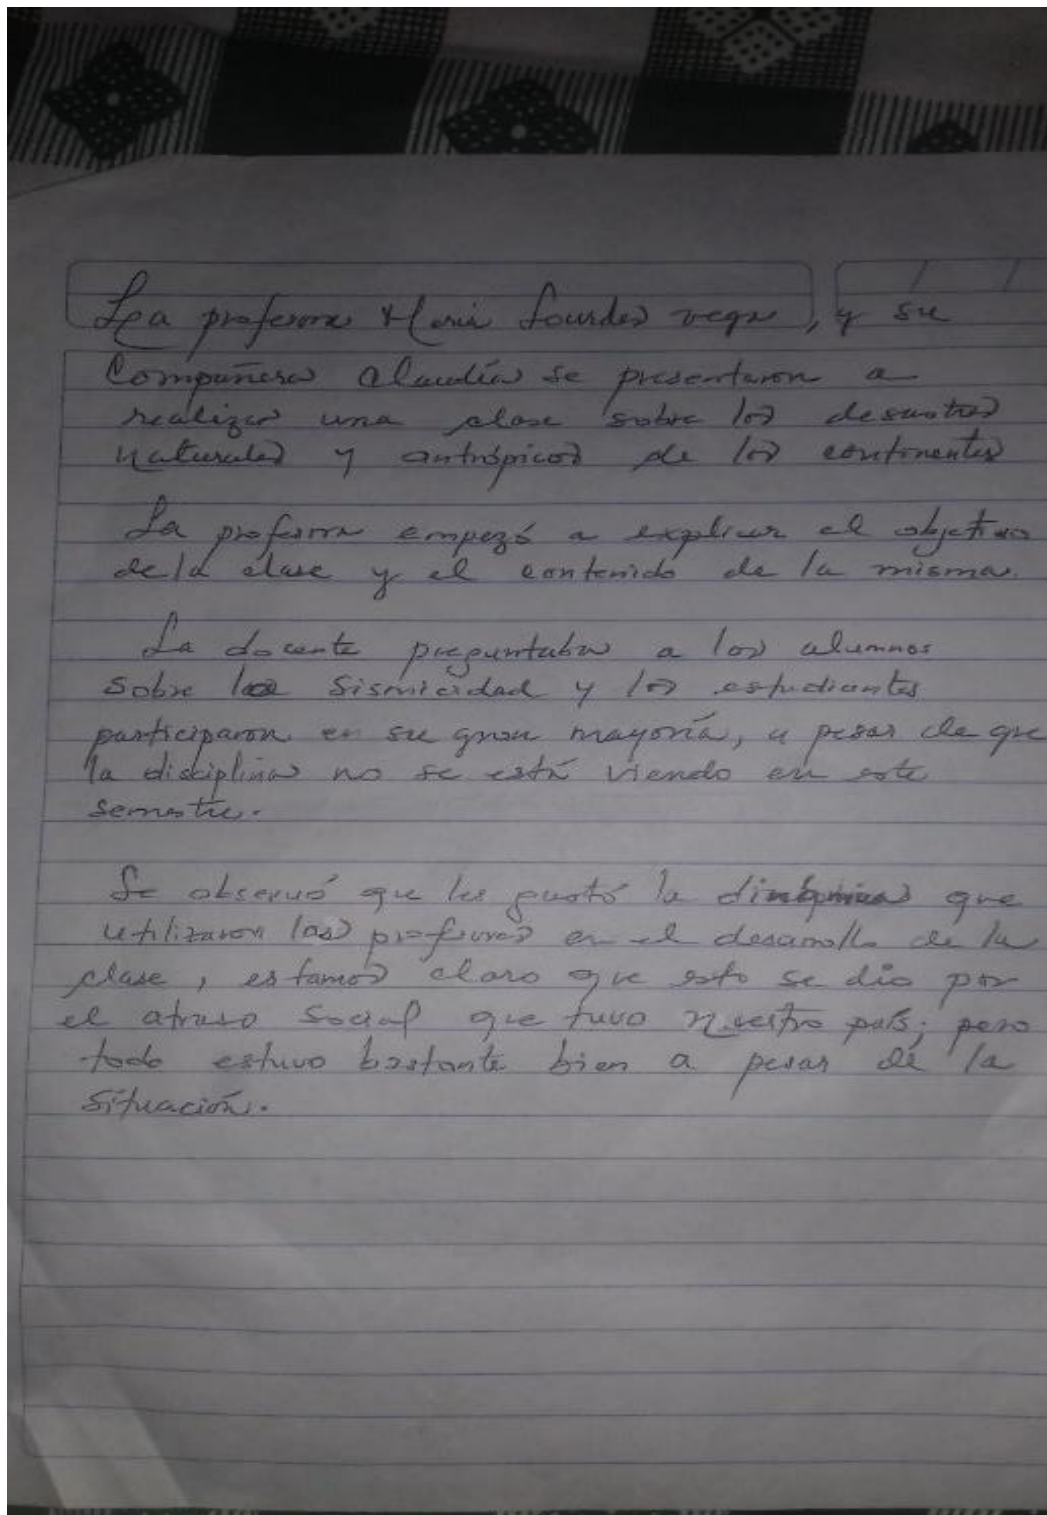 La profesora Maria Lourdes vega, y su
Compañera Claudia se presentaron a
realizar una clase sobre los desastres
naturales y antrópicos de los continentes
La profesora empezó a explicar el objetivo
de la clase y el contenido de la misma.
La docente preguntaba a los alumnos
sobre la sismicidad y los estudiantes
participaron en su gran mayoría, a pesar de que
la disciplina no se está viendo en este
semestre.
Se observó que les gustó la dinámica que
utilizaron las profesoras en el desarrollo de la
clase, estamos claro que esto se dio por
el atraso Social que tuvo nuestro país; pero
todo estuvo bastante bien a pesar de la
situación.